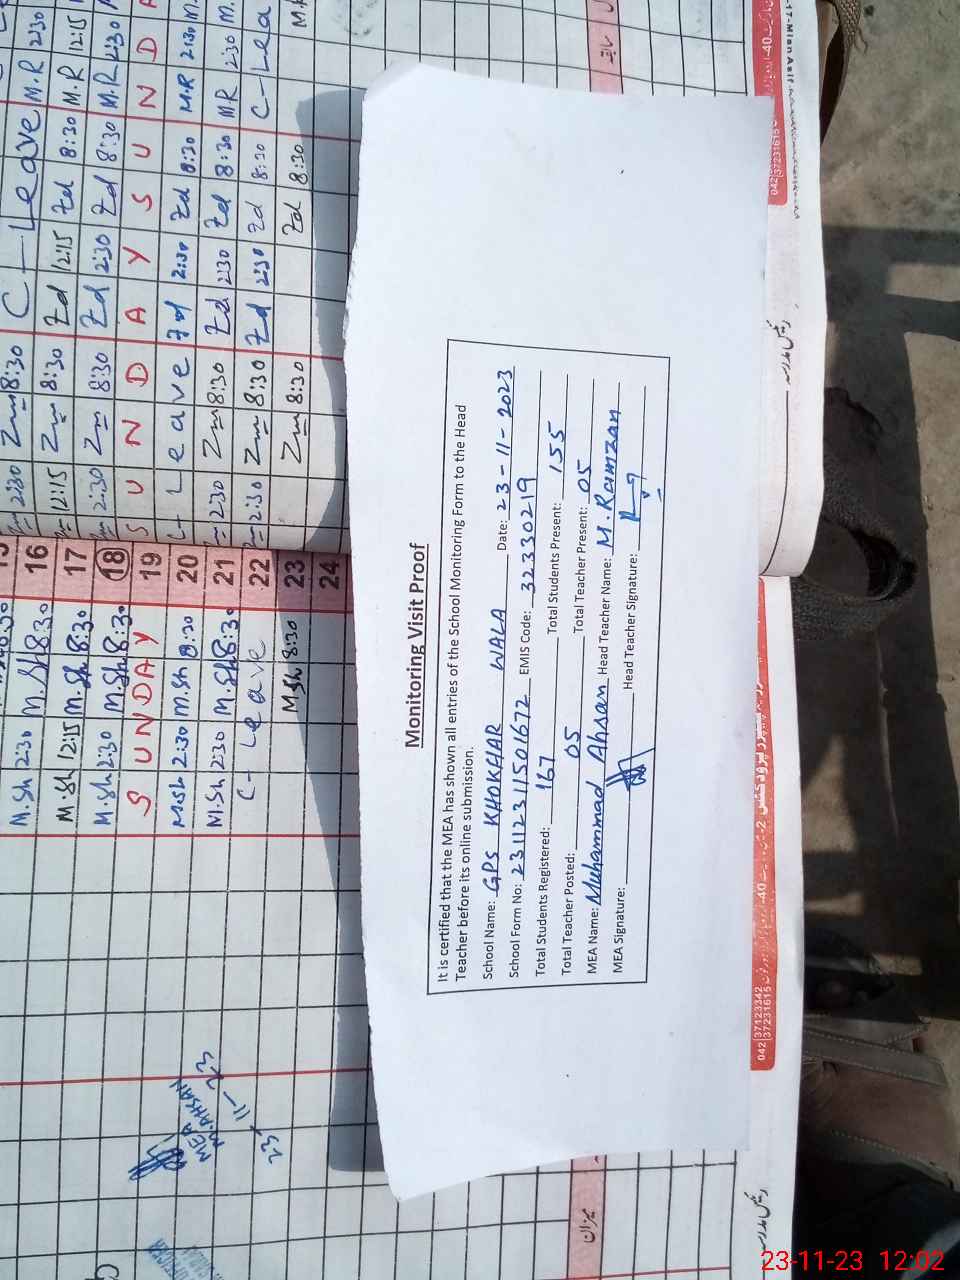 Monitoring Visit Proof
It is certified that the MEA has shown all entries of the School Monitoring Form to the Head
Teacher before its online submission.
School Name: GPS KHOKHAR WALA Date: 23-11-2023
School Form No: 23112311501672 EMIS Code: 32330219
Total Students Registered: 167 Total Students Present: 155
Total Teacher Posted: 05 Total Teacher Present: 05
MEA Name: Muhammad Ahsan Head Teacher Name: M. Ramzan
MEA Signature: Head Teacher Signature:
M.Sh 2:30 M.Sh 8:30 16 2:30 Zm 8:30 C - Leave M.R 2:30
M.Sh 12:15 M.Sh 8:30 17 12:15 Zm 8:30 Zd 12:15 Zd 8:30 M.R 12:15
M.Sh 2:30 M.Sh 8:30 18 2:30 Zm 8:30 Zd 2:30 Zd 8:30 M.R 2:30
SUNDAY 19 SUNDAY SUND
M.Sh 2:30 M.Sh 8:30 20 C - Leave Zd 2:30 Zd 8:30 M.R 2:30
M.Sh 2:30 M.Sh 8:30 21 2:30 Zm 8:30 Zd 2:30 Zd 8:30 MR 2:30
C - Leave 22 2:30 Zm 8:30 Zd 2:30 Zd 8:30 C - Lea
M.Sh 8:30 23 Zm 8:30 Zd 8:30
24
MEA
M.AHSAN
23-11-23
میزان
سابقہ
رئیس مدرسہ
رئیس مدرسہ
042 37123342
37231615
23-11-23 12:02